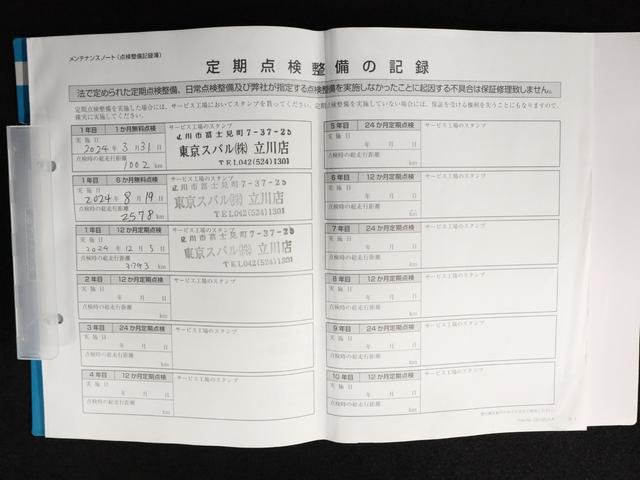 メンテナンスノート(点検整備記録簿)
定期点検整備の記録
法で定められた定期点検整備、日常点検整備及び弊社が指定する点検整備を実施しなかったことに起因する不具合は保証修理致しません。
定期点検整備を実施した場合には、サービス工場においてスタンプを貰ってください。定期点検整備を実施していない場合には、保証を受ける権利を失うこともになりますので、
確実に実施してください。
1年目 1か月無料点検 サービス工場のスタンプ
実施日 立川市富士見町7-37-25
2024年3月31日 東京スバル(株)立川店
点検時の総走行距離 TEL042(524)1301
1002 km
1年目 6か月無料点検 サービス工場のスタンプ
実施日 立川市富士見町7-37-25
2024年8月19日 東京スバル(株)立川店
点検時の総走行距離 TEL042(524)1301
2578 km
1年目 12か月定期点検 サービス工場のスタンプ
実施日 立川市富士見町7-37-25
2024年12月5日 東京スバル(株)立川店
点検時の総走行距離 TEL042(524)1301
3793 km
2年目 12か月定期点検 サービス工場のスタンプ
実施日
年 月 日
点検時の総走行距離
km
3年目 12か月定期点検 サービス工場のスタンプ
実施日
年 月 日
点検時の総走行距離
km
4年目 12か月定期点検 サービス工場のスタンプ
実施日
年 月 日
点検時の総走行距離
km
5年目 24か月定期点検 サービス工場のスタンプ
実施日
年 月 日
点検時の総走行距離
km
6年目 12か月定期点検 サービス工場のスタンプ
実施日
年 月 日
点検時の総走行距離
km
7年目 24か月定期点検 サービス工場のスタンプ
実施日
年 月 日
点検時の総走行距離
km
8年目 12か月定期点検 サービス工場のスタンプ
実施日
年 月 日
点検時の総走行距離
km
9年目 24か月定期点検 サービス工場のスタンプ
実施日
年 月 日
点検時の総走行距離
km
10年目 12か月定期点検 サービス工場のスタンプ
実施日
年 月 日
点検時の総走行距離
km